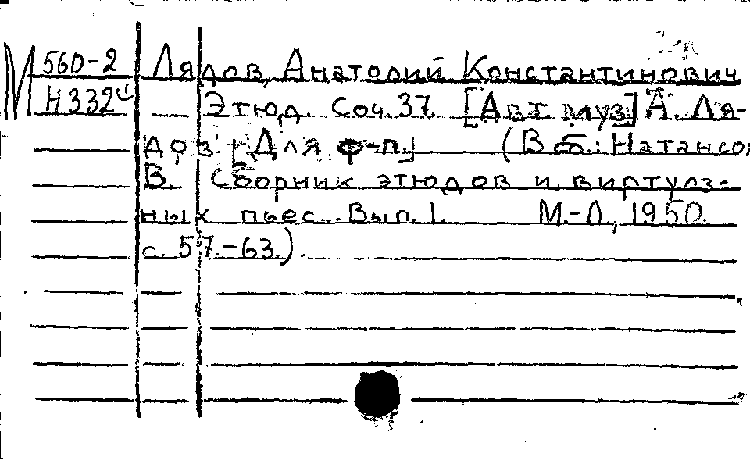 М 560-2 Лядов, Анатолий Константинович
Н332ч Этюд. Соч. 37. [Авт. муз.] А. Ля-
дов [Для ф-п.] (В сб.: Натансон
В. Сборник этюдов и виртуоз-
ных пьес. Вып. 1. М.-Л., 1950.
с. 57.-63.)